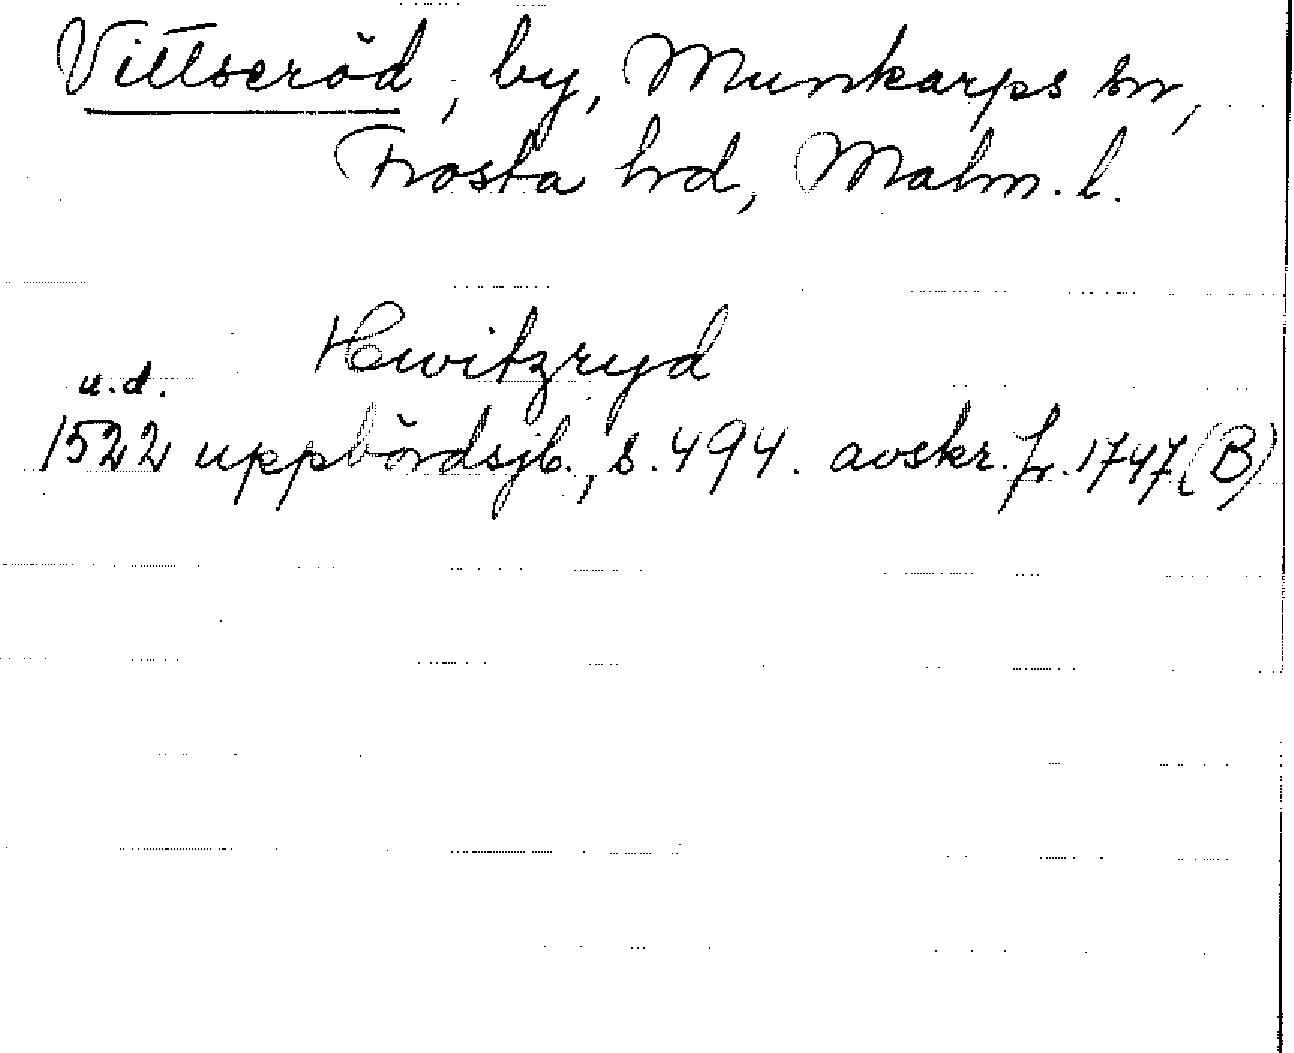 Vittseröd, by, Munkarps sn,
Frosta hrd, Malm. l.
Hwitzryd
u.d.
1522 uppbördsjb., s. 494. avskr. fr. 1747 (B)